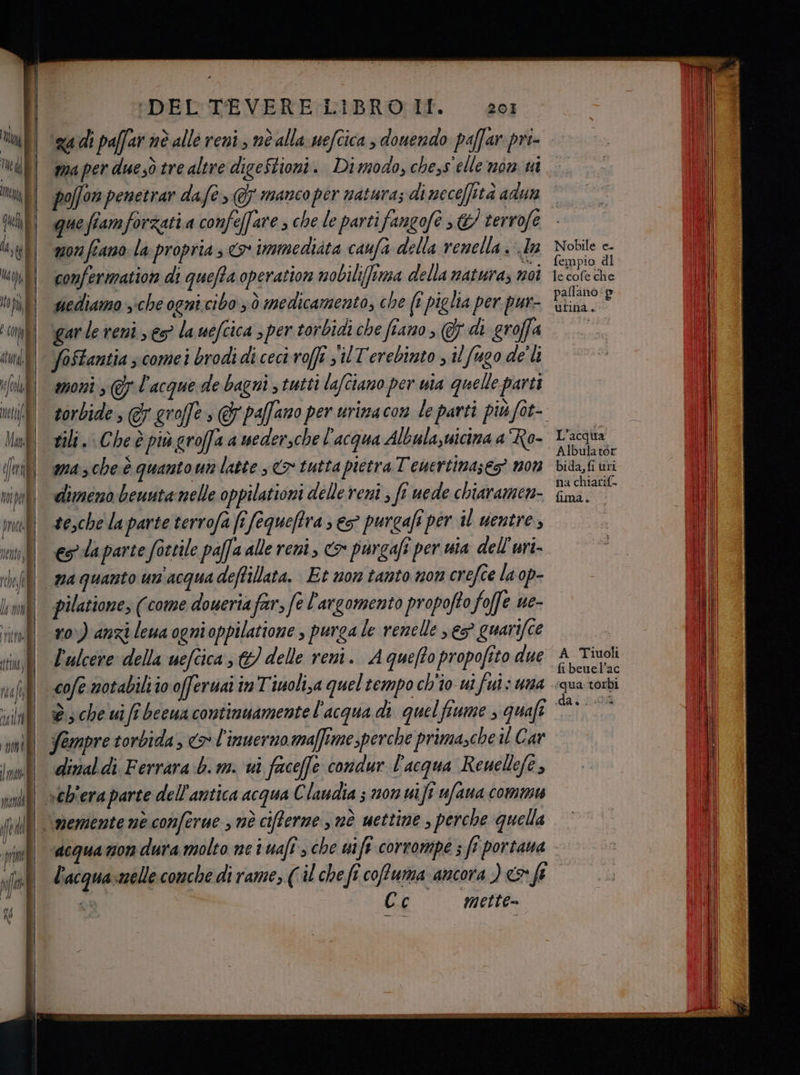 DEL TEVERE LIBRO II. 201
za di paſſar nè alle reni, nè alla ueſcica, douendo paſſar pri-
ma per due, ò tre altre digeſtioni. Di modo, che, s'elle non ui
poſſon penetrar da ſe, & manco per natura; di neceſſità adun
que ſiam forzati a confeſſare, che le parti fangoſe, & terroſe
non ſiano la propria, & immediata cauſa della renella. In
confermation di queſta operation nobiliſſima della natura, noi
uediamo, che ogni cibo, ò medicamento, che ſi piglia per pur-
gar le reni, & la ueſcica, per torbidi che ſiano, & di groſſa
ſoſtantia, come i brodi di ceci roſſi, il Terebinto, il ſugo de'li
moni, & l'acque de bagni, tutti laſciano per uia quelle parti
torbide, & groſſe, & paſſano per urina con le parti più ſot-
tili. Che è più groſſa a ueder, che l'acqua Albula, uicina a Ro-
ma, che è quanto un latte, & tutta pietra Teuertina, & non
dimeno beuuta nelle oppilationi delle reni, ſi uede chiaramen-
te, che la parte terroſa ſi ſequeſtra, & purgaſi per il uentre,
& la parte ſottile paſſa alle reni, & purgaſi per uia dell'uri-
na quanto un'acqua deſtillata. Et non tanto non creſce la op-
pilatione, (come doueria far, ſe l'argomento propoſto foſſe ue-
ro) anzi leua ogni oppilatione, purga le renelle, & guariſce
l'ulcere della ueſcica, & delle reni. A queſto propoſito due
coſe notabili io oſſeruai in Tiuoli, a quel tempo ch'io ui fui: una
è, che ui ſi beeua continuamente l'acqua di quel fiume, quaſi
ſempre torbida, & l'inuerno maſſime, perche prima, che il Car
dinal di Ferrara b. m. ui faceſſe condur l'acqua Reuelleſe,
ch'era parte dell'antica acqua Claudia; non ui ſi uſaua commu
nemente nè conſerue, nè ciſterne, nè uettine, perche quella
acqua non dura molto ne i uaſi, che ui ſi corrompe; ſi portaua
l'acqua nelle conche di rame, (il che ſi coſtuma ancora) & ſi
Cc mette-
Nobile e-
ſempio di
le coſe che
paſſano p
urina.
L'acqua
Albula tor
bida, ſi uri
na chiariſ-
ſima.
A Tiuoli
ſi beue l'ac
qua torbi
da.